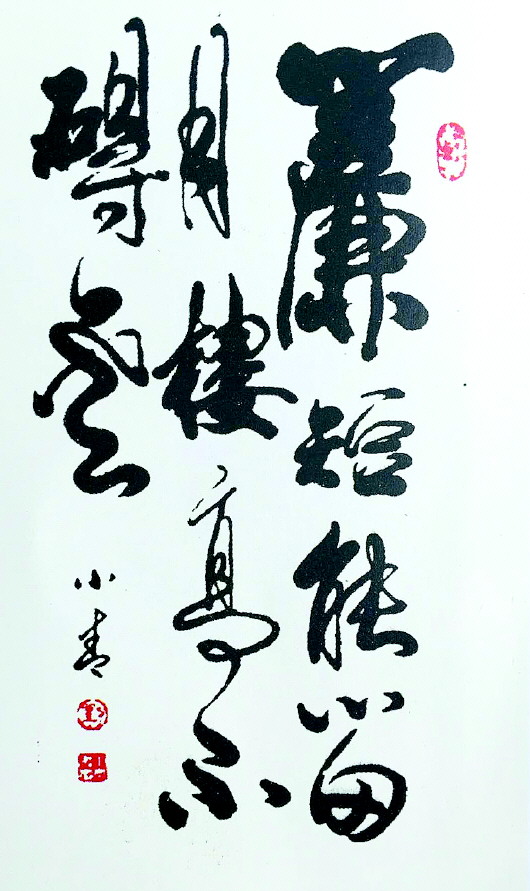 簾短能留
月樓高不
礙雲
小青